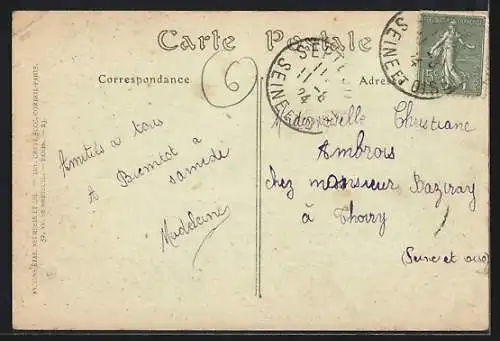 Carte Postale
Correspondance
Adresse
SEPT
SEINE ET OISE
SEINE ET OISE
15c
6
Amitiés a tous
A Bientot a
samedi
Madeleine
Mademoiselle Christiane
Ambrois
chez monsieur Baziray
à Thoiry
(Seine et oise)